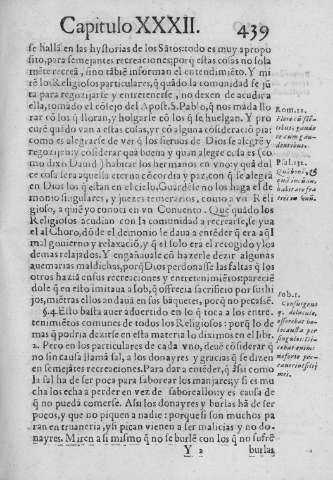 Capitulo XXXII. 439
se halla en las hystorias de los Sãtos: todo es muy apropo
sito, para semejantes recreaciones: porq̃ estas cosas no sola
mẽte recreã, sino tãbiẽ informan el entendimiẽto. Y mi
rẽ los Religiosos particulares, q̃ quãdo la comunidad se jũ
ta para regozijarse y entretenerse, no dexen de acudir a
ella, tomãdo el cõsejo del Apost. S. Pablo, q̃ nos mãda llo
rar cõ los q̃ lloran, y holgarse cõ los q̃ se huelgan. Y pro
curẽ quãdo van a estas cosas, yr cõ alguna cõsideraciõ pia:
como es alegrarse de ver q̃ los siervos de Dios se alegrẽ y
regozijen: y cõsiderar quã buena y quan alegre cosa es (co
mo dixo David) habitar los hermanos en vno: y quã dul
ce cosa sera aquella eterna cõcordia y paz, con q̃ se alegrã
en Dios los q̃ estan en el cielo. Guardẽse no los haga el de
monio singulares, y juezes temerarios, como a vn Reli
gioso, a quiẽ yo conoci en vn Convento. Que quãdo los
Religiosos acudian con la comunidad a recrearse, se yva
el al Choro, dõde el demonio le dava a entẽder q̃ era aq̃l
mal govierno y relaxaciõ, y q̃ el solo era el recogido y los
demas relajados. Y engañavale cõ hazerle dezir algunas
avemarias maldichas, porq̃ Dios perdonasse las faltas q̃ los
otros haziã en sus recreaciones y entretenimiẽtos: parecie
dole q̃ en esto imitava a Iob, q̃ ofrecia sacrificio por sus hi
jos, miẽtras ellos andavã en sus bãquetes, porq̃ no pecassẽ.
§. 4. Esto basta aver advertido en lo q̃ toca a los entre
tenimiẽtos comunes de todos los Religiosos: porq̃ lo de
mas q̃ podria dezirse en esta materia lo diximos en el libr.
2. Pero en los particulares de cada vno, deve cõsiderar q̃
no sin causa llamã sal, a los donayres y gracias q̃ se dizen
en semejãtes recreaciones. Para dar a entẽder, q̃ assi como
la sal ha de ser poca para saborear los manjares; y si es mu
cha los echa a perder en vez de saborcallos: y es causa de
q̃ no pueda comerse. Assi los donayres y burlas hã de ser
pocos, y que no piquen a nadie: porque si son muchos pa
ran en truaneria, y si pican vienen a ser malicias y no do-
nayres. Miren a si mismo q̃ no se burlẽ con los q̃ no sufrẽ
Y 2 burlas
Rom. 12.
Flere cũ flẽ-
tibus: gaude
re cum gau-
dentibus.
Psal. 132.
Iob. 1.
Consurgens
q; diluculo,
offerebat ho
locausta per
singulos: Di-
cebat enim:
ne forte pec-
caverint filij
mei.